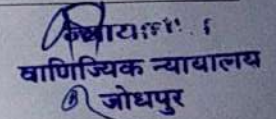 वाणिज्यिक न्यायालय
जोधपुर